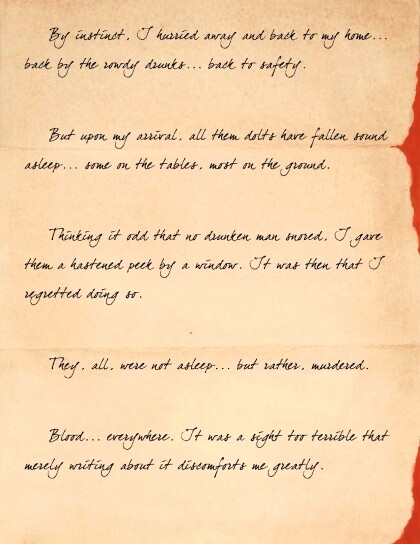 By instinct, I hurried away and back to my home...
back by the rowdy drunks... back to safety.
But upon my arrival, all them dolts have fallen sound
asleep... some on the tables, most on the ground.
Thinking it odd that no drunken man snored, I gave
them a hastened peek by a window. It was then that I
regretted doing so.
They, all, were not asleep... but rather, murdered.
Blood... everywhere. It was a sight too terrible that
merely writing about it discomforts me greatly.